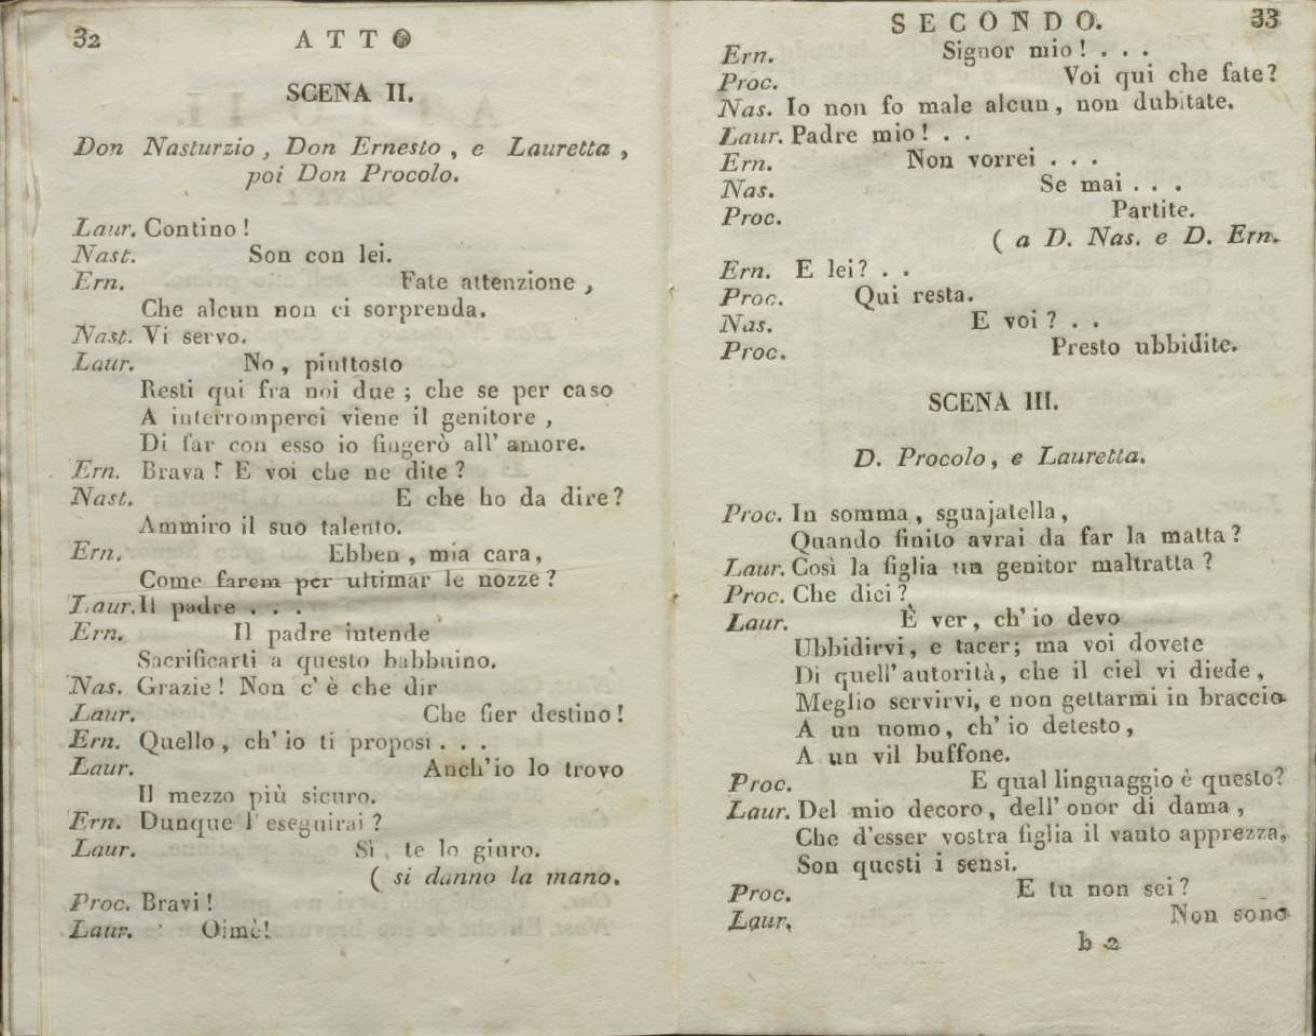 32 ATTO
SCENA II.
Don Nasturzio, Don Ernesto, e Lauretta,
poi Don Procolo.
Laur. Contino!
Nast. Son con lei.
Ern. Fate attenzione,
Che alcun non ci sorprenda.
Nast. Vi servo.
Laur. No, piuttosto
Resti qui fra noi due; che se per caso
A interromperci viene il genitore,
Di far con esso io fingerò all' amore.
Ern. Brava! E voi che ne dite?
Nast. E che ho da dire?
Ammiro il suo talento.
Ern. Ebben, mia cara,
Come farem per ultimar le nozze?
Laur. Il padre . . .
Ern. Il padre intende
Sacrificarti a questo babbuino.
Nas. Grazie! Non c' è che dir
Laur. Che fier destino!
Ern. Quello, ch' io ti proposi . . .
Laur. Anch'io lo trovo
Il mezzo più sicuro.
Ern. Dunque l' eseguirai?
Laur. Sì, te lo giuro.
( si danno la mano.
Proc. Bravi!
Laur. Oimè!
SECONDO. 33
Ern. Signor mio! . . .
Proc. Voi qui che fate?
Nas. Io non fo male alcun, non dubitate.
Laur. Padre mio! . .
Ern. Non vorrei . . .
Nas. Se mai . . .
Proc. Partite.
( a D. Nas. e D. Ern.
Ern. E lei? . .
Proc. Qui resta.
Nas. E voi? . .
Proc. Presto ubbidite.
SCENA III.
D. Procolo, e Lauretta.
Proc. In somma, sguajatella,
Quando finito avrai da far la matta?
Laur. Così la figlia un genitor maltratta?
Proc. Che dici?
Laur. È ver, ch' io devo
Ubbidirvi, e tacer; ma voi dovete
Di quell' autorità, che il ciel vi diede,
Meglio servirvi, e non gettarmi in braccio
A un uomo, ch' io detesto,
A un vil buffone.
Proc. E qual linguaggio è questo?
Laur. Del mio decoro, dell' onor di dama,
Che d'esser vostra figlia il vanto apprezza,
Son questi i sensi.
Proc. E tu non sei?
Laur. Non sono
b 2